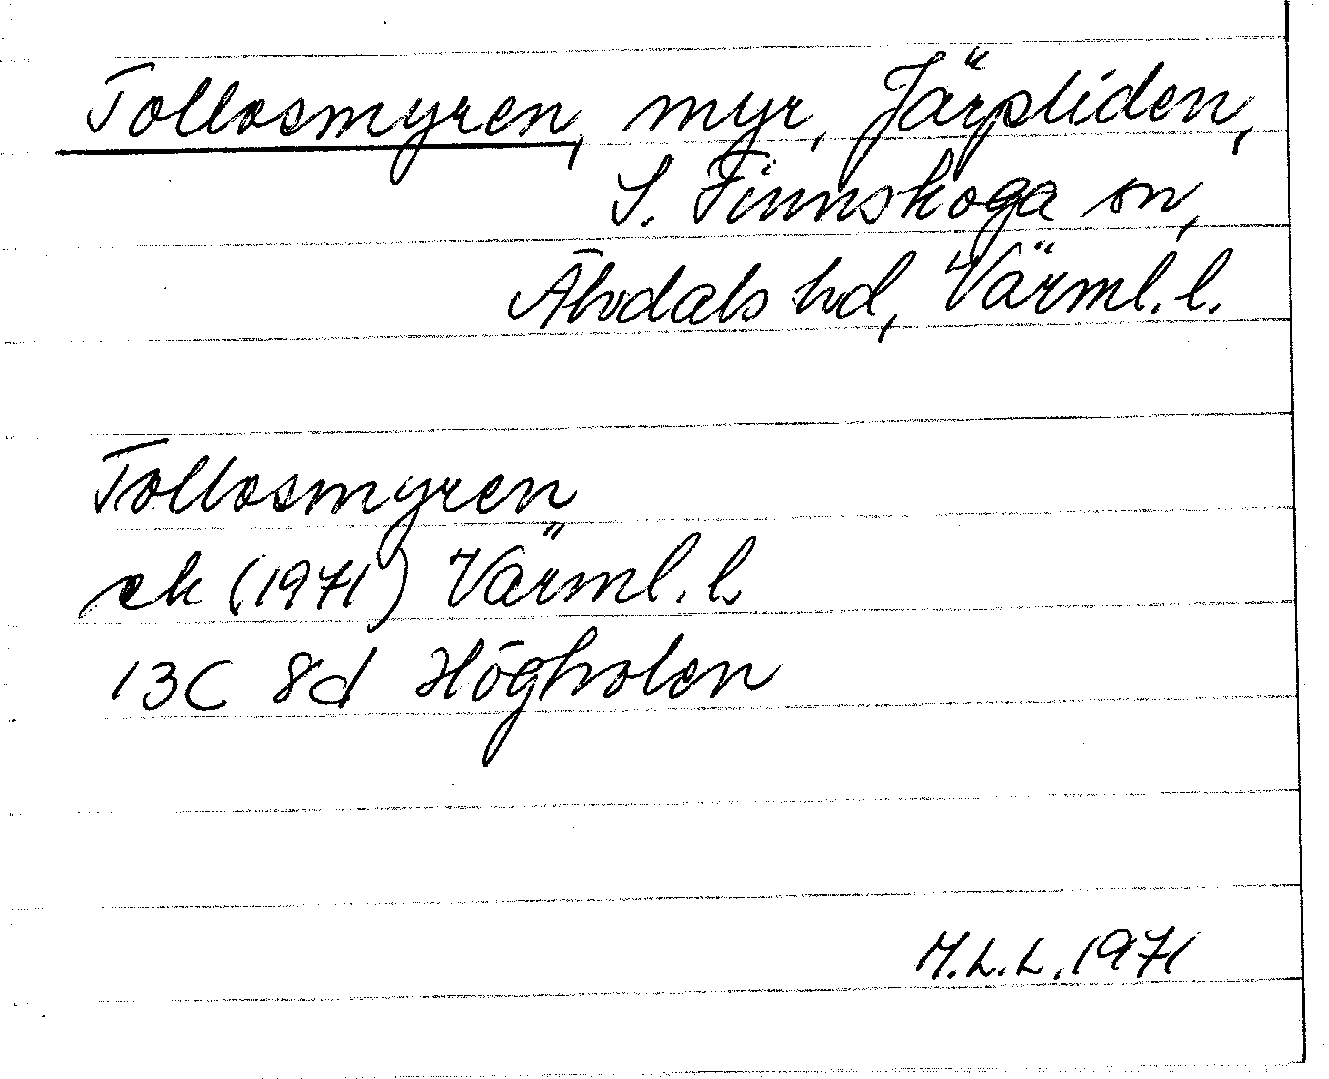 Tollosmyren, myr, Järpliden,
S. Finnskoga sn,
Älvdals hd, Värml. l.
Tollosmyren
ek (1971) Värml. l.
13C 8d Högholen
M.L.L. 1971